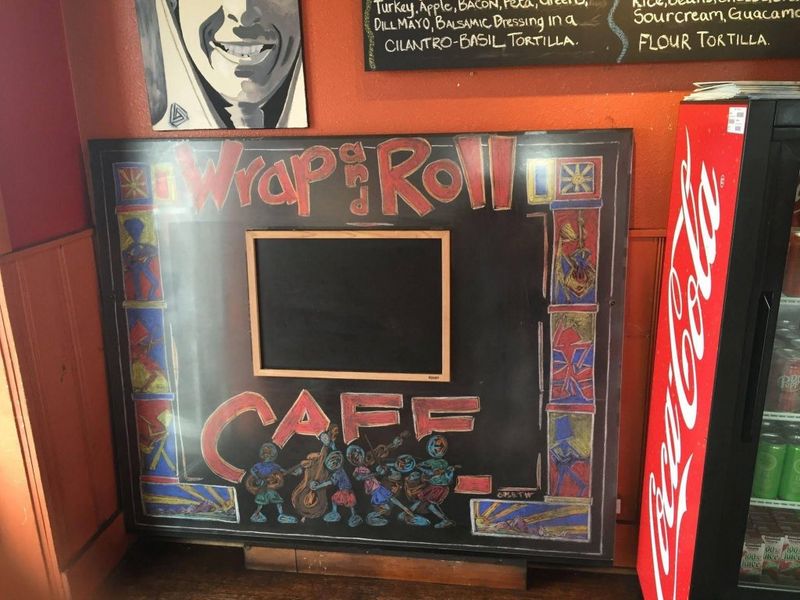 Turkey, Apple, BACON, Feta, Greens,
DILL MAYO, BALSAMIC DRESSING IN A
CILANTRO-BASIL TORTILLA.
Rice, Beans,
Sourcream, Guacamo
FLOUR TORTILLA.
Wrap and Roll
CAFE
Coca-Cola